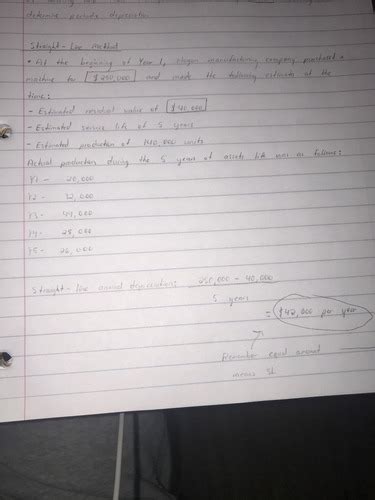 determine periodic depreciation
Straight-Line Method
• At the beginning of Year 1, Hogan manufacturing company purchased a
machine for $250,000 and made the following estimates at the
time:
- Estimated residual value of $40,000
- Estimated service life of 5 years
- Estimated production of units
Actual production during the 5 years of assets life was as follows:
Y1 - 20,000
Y2 - 32,000
Y3 - 44,000
Y4 - 28,000
Y5 - 26,000
Straight-line annual depreciation: 250,000 - 40,000
5 years
= $42,000 per year
Remember equal amount
means SL